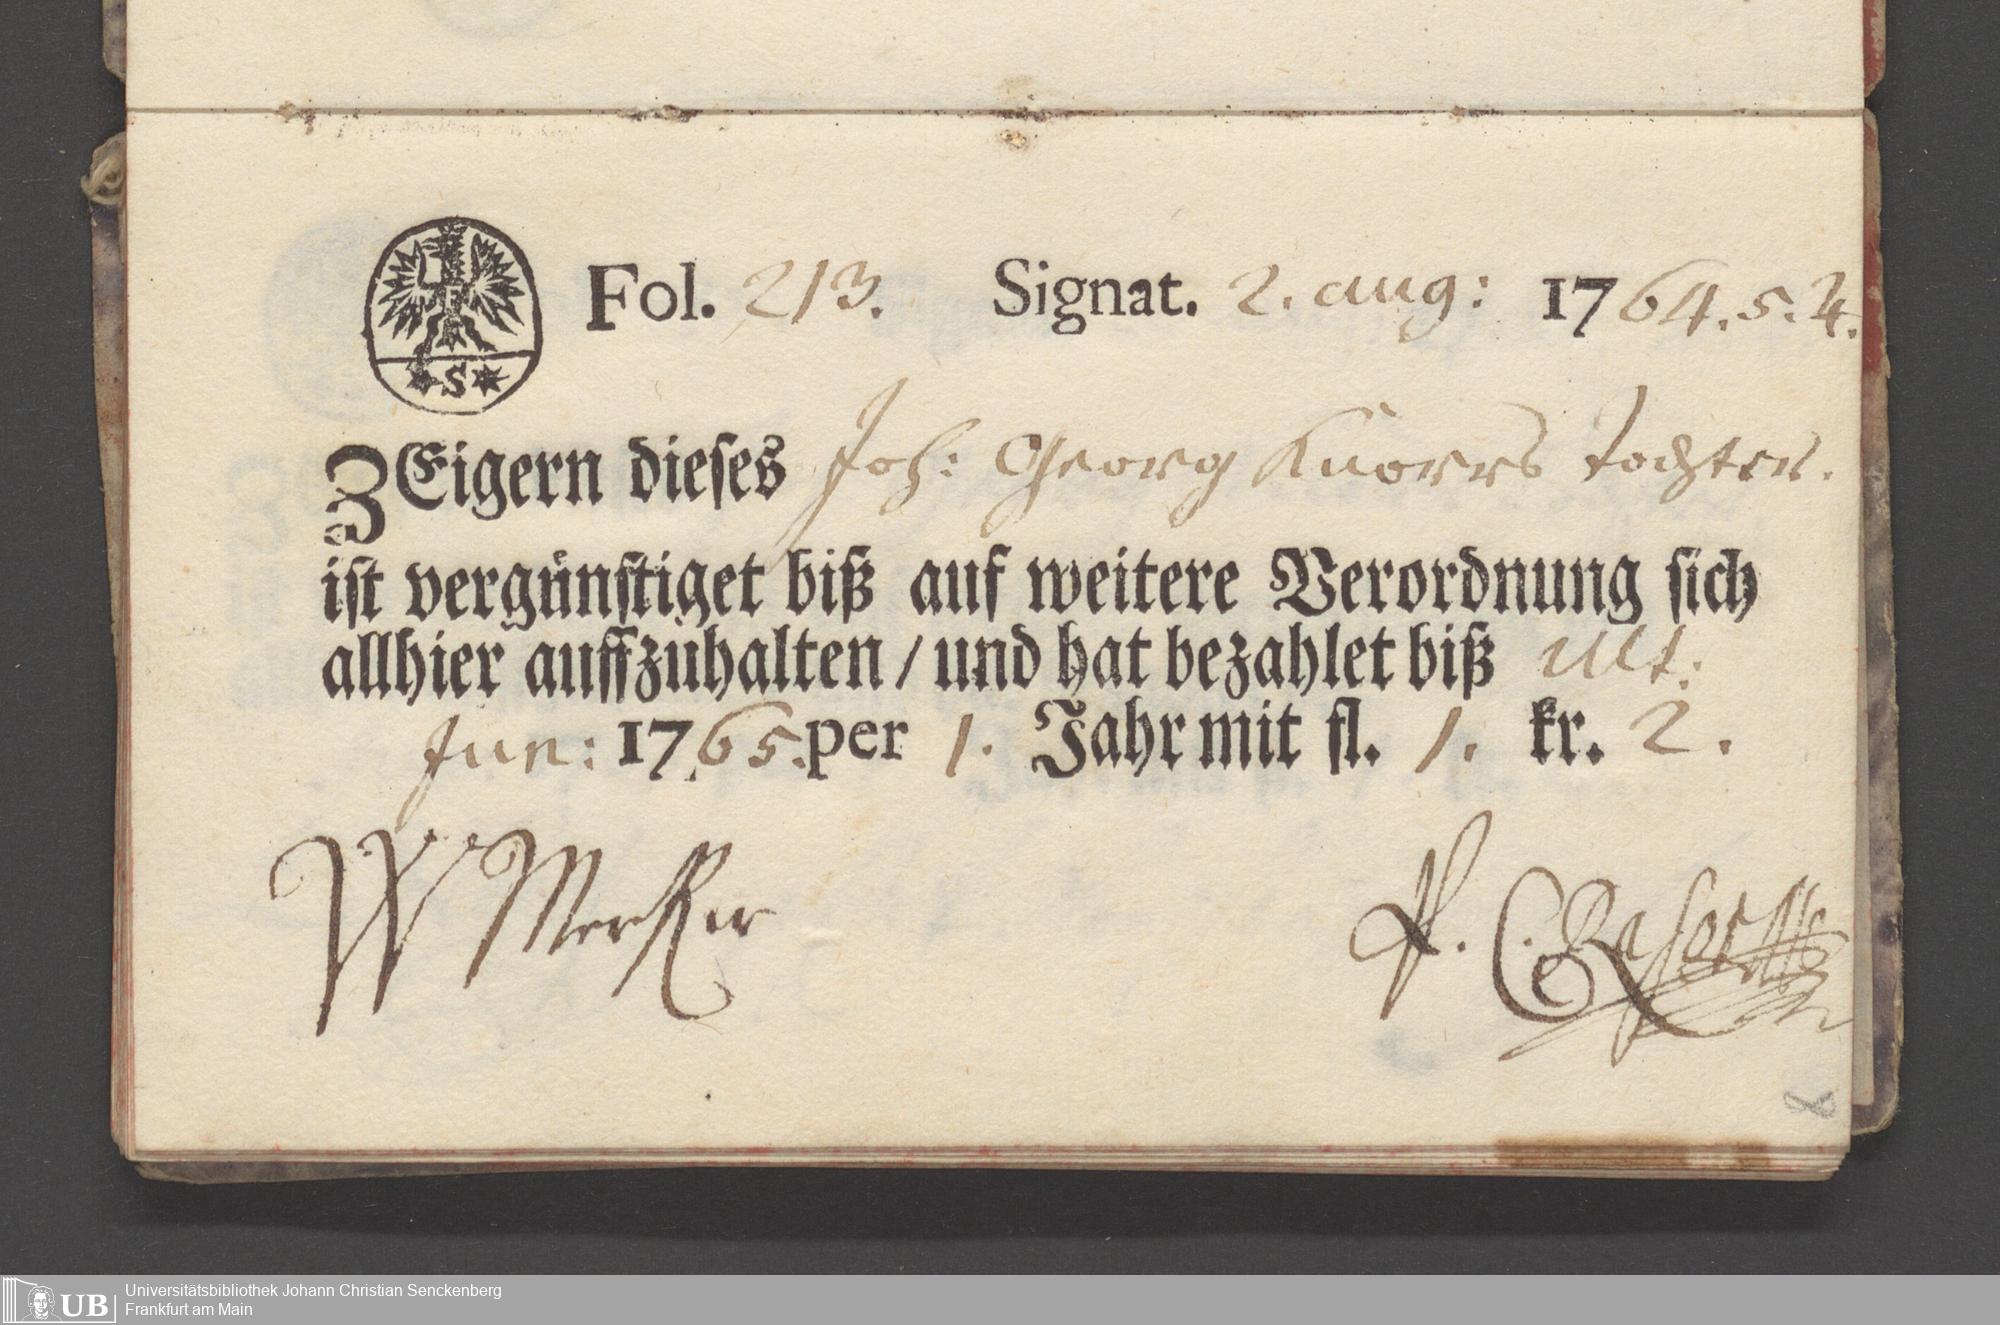 Fol. 213. Signat. 2. aug: 1764. 5. 4.
F
* S *
ZEigern dieses Joh: Georg Knorrs Tochter.
ist vergünstiget biß auf weitere Verordnung sich
allhier auffzuhalten / und hat bezahlet biß Ult:
Jun: 1765. per 1. Jahr mit fl. 1. kr. 2.
W Mercker
8
Universitätsbibliothek Johann Christian Senckenberg
Frankfurt am Main
UB